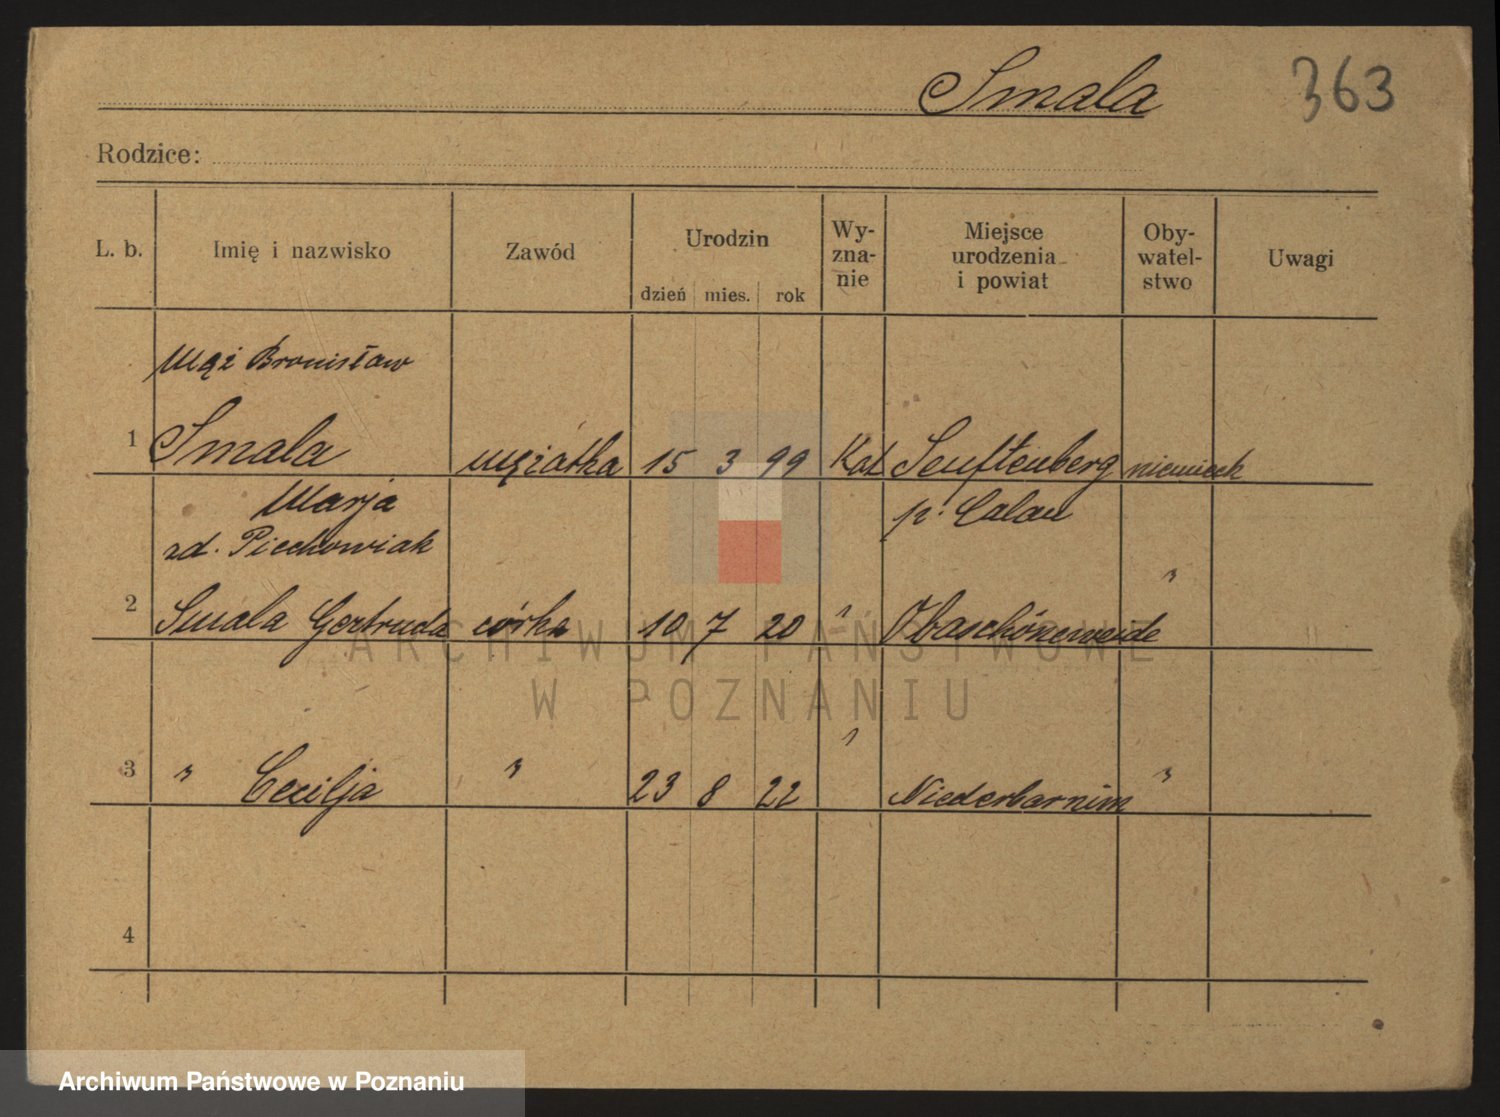 Smala 363
Rodzice:
L. b. Imię i nazwisko Zawód Urodzin dzień mies. rok Wy-zna-nie Miejsce urodzenia i powiat Oby-watel-stwo Uwagi
mąż Bronisław
1 Smala mężatka 15 3 99 Kat Senftenberg niemieck
Marja p. Calau
zd. Piechowiak
2 Smala Gertruda córka 10 7 20 " Obaschöneweide "
3 " Cecilja " 23 8 22 " Niederbarnim "
4
ARCHIWUM PAŃSTWOWE
W POZNANIU
Archiwum Państwowe w Poznaniu